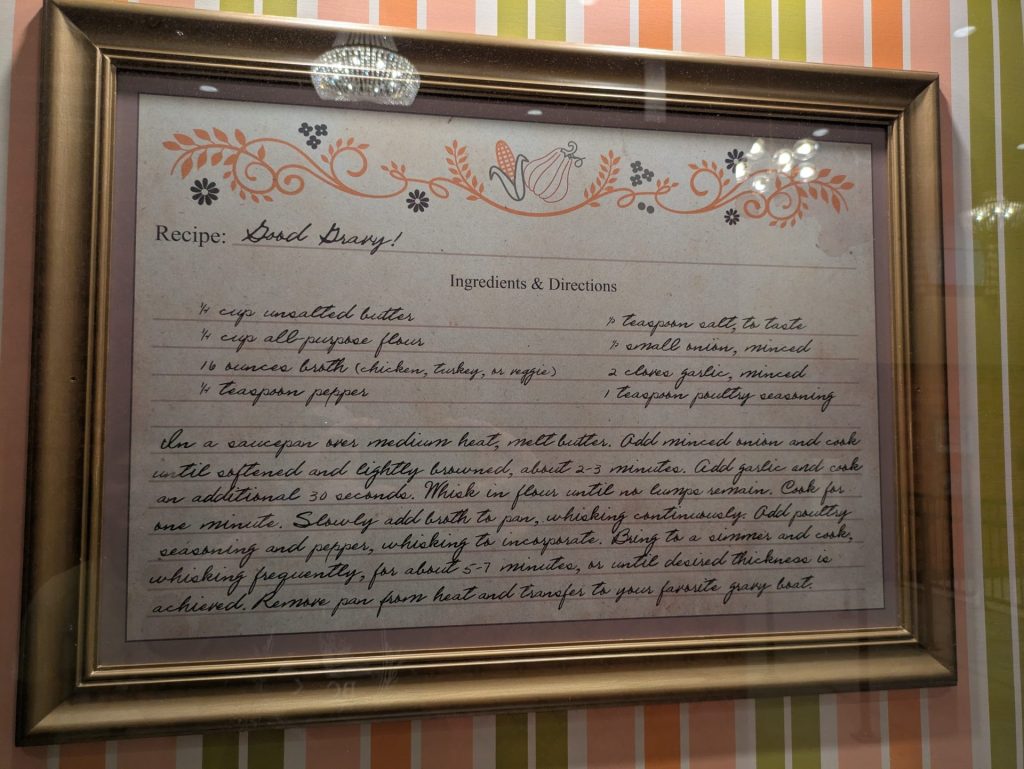 Recipe: Good Gravy!
Ingredients & Directions
¼ cup unsalted butter
¼ cup all-purpose flour
16 ounces broth (chicken, turkey, or veggie)
¼ teaspoon pepper
teaspoon salt, to taste
small onion, minced
2 cloves garlic, minced
1 teaspoon poultry seasoning
In a saucepan over medium heat, melt butter. Add minced onion and cook
until softened and lightly browned, about 2-3 minutes. Add garlic and cook
an additional 30 seconds. Whisk in flour until no lumps remain. Cook for
one minute. Slowly add broth to pan, whisking continuously. Add poultry
seasoning and pepper, whisking to incorporate. Bring to a simmer and cook,
whisking frequently, for about 5-7 minutes, or until desired thickness is
achieved. Remove pan from heat and transfer to your favorite gravy boat.